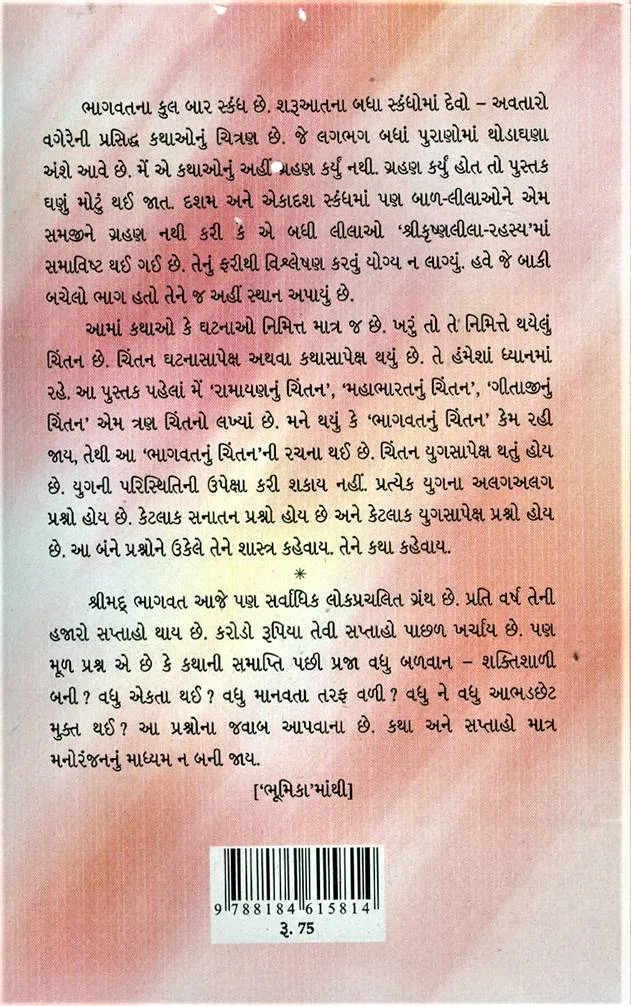 ભાગવતના કુલ બાર સ્કંધ છે. શરૂઆતના બધા સ્કંધોમાં દેવો – અવતારો
વગેરેની પ્રસિદ્ધ કથાઓનું ચિત્રણ છે. જે લગભગ બધાં પુરાણોમાં થોડાઘણા
અંશે આવે છે. મેં એ કથાઓનું અહીં ગ્રહણ કર્યું નથી. ગ્રહણ કર્યું હોત તો પુસ્તક
ઘણું મોટું થઈ જાત. દશમ અને એકાદશ સ્કંધમાં પણ બાળ-લીલાઓને એમ
સમજીને ગ્રહણ નથી કરી કે એ બધી લીલાઓ ‘શ્રીકૃષ્ણલીલા-રહસ્ય’માં
સમાવિષ્ટ થઈ ગઈ છે. તેનું ફરીથી વિશ્લેષણ કરવું યોગ્ય ન લાગ્યું. હવે જે બાકી
બચેલો ભાગ હતો તેને જ અહીં સ્થાન અપાયું છે.
આમાં કથાઓ કે ઘટનાઓ નિમિત્ત માત્ર જ છે. ખરું તો તે નિમિત્તે થયેલું
ચિંતન છે. ચિંતન ઘટનાસાપેક્ષ અથવા કથાસાપેક્ષ થયું છે. તે હંમેશાં ધ્યાનમાં
રહે. આ પુસ્તક પહેલાં મેં ‘રામાયણનું ચિંતન’, ‘મહાભારતનું ચિંતન’, ‘ગીતાજીનું
ચિંતન’ એમ ત્રણ ચિંતનો લખ્યાં છે. મને થયું કે ‘ભાગવતનું ચિંતન’ કેમ રહી
જાય, તેથી આ ‘ભાગવતનું ચિંતન’ની રચના થઈ છે. ચિંતન યુગસાપેક્ષ થતું હોય
છે. યુગની પરિસ્થિતિની ઉપેક્ષા કરી શકાય નહીં. પ્રત્યેક યુગના અલગઅલગ
પ્રશ્નો હોય છે. કેટલાક સનાતન પ્રશ્નો હોય છે અને કેટલાક યુગસાપેક્ષ પ્રશ્નો હોય
છે. આ બંને પ્રશ્નોને ઉકેલે તેને શાસ્ત્ર કહેવાય. તેને કથા કહેવાય.
*
શ્રીમદ્ ભાગવત આજે પણ સર્વાધિક લોકપ્રચલિત ગ્રંથ છે. પ્રતિ વર્ષ તેની
હજારો સપ્તાહો થાય છે. કરોડો રૂપિયા તેવી સપ્તાહો પાછળ ખર્ચાય છે. પણ
મૂળ પ્રશ્ન એ છે કે કથાની સમાપ્તિ પછી પ્રજા વધુ બળવાન – શક્તિશાળી
બની? વધુ એકતા થઈ? વધુ માનવતા તરફ વળી? વધુ ને વધુ આભડછેટ
મુક્ત થઈ? આ પ્રશ્નોના જવાબ આપવાના છે. કથા અને સપ્તાહો માત્ર
મનોરંજનનું માધ્યમ ન બની જાય.
[‘ભૂમિકા’માંથી]
9 788184 615814
રૂ. 75